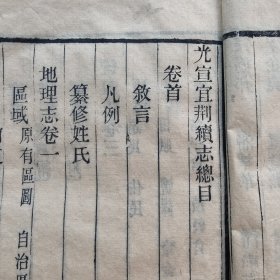 光宣宜荆續志總目
卷首
敘言
凡例
纂修姓氏
地理志卷一
區域 原有區圖 自治區